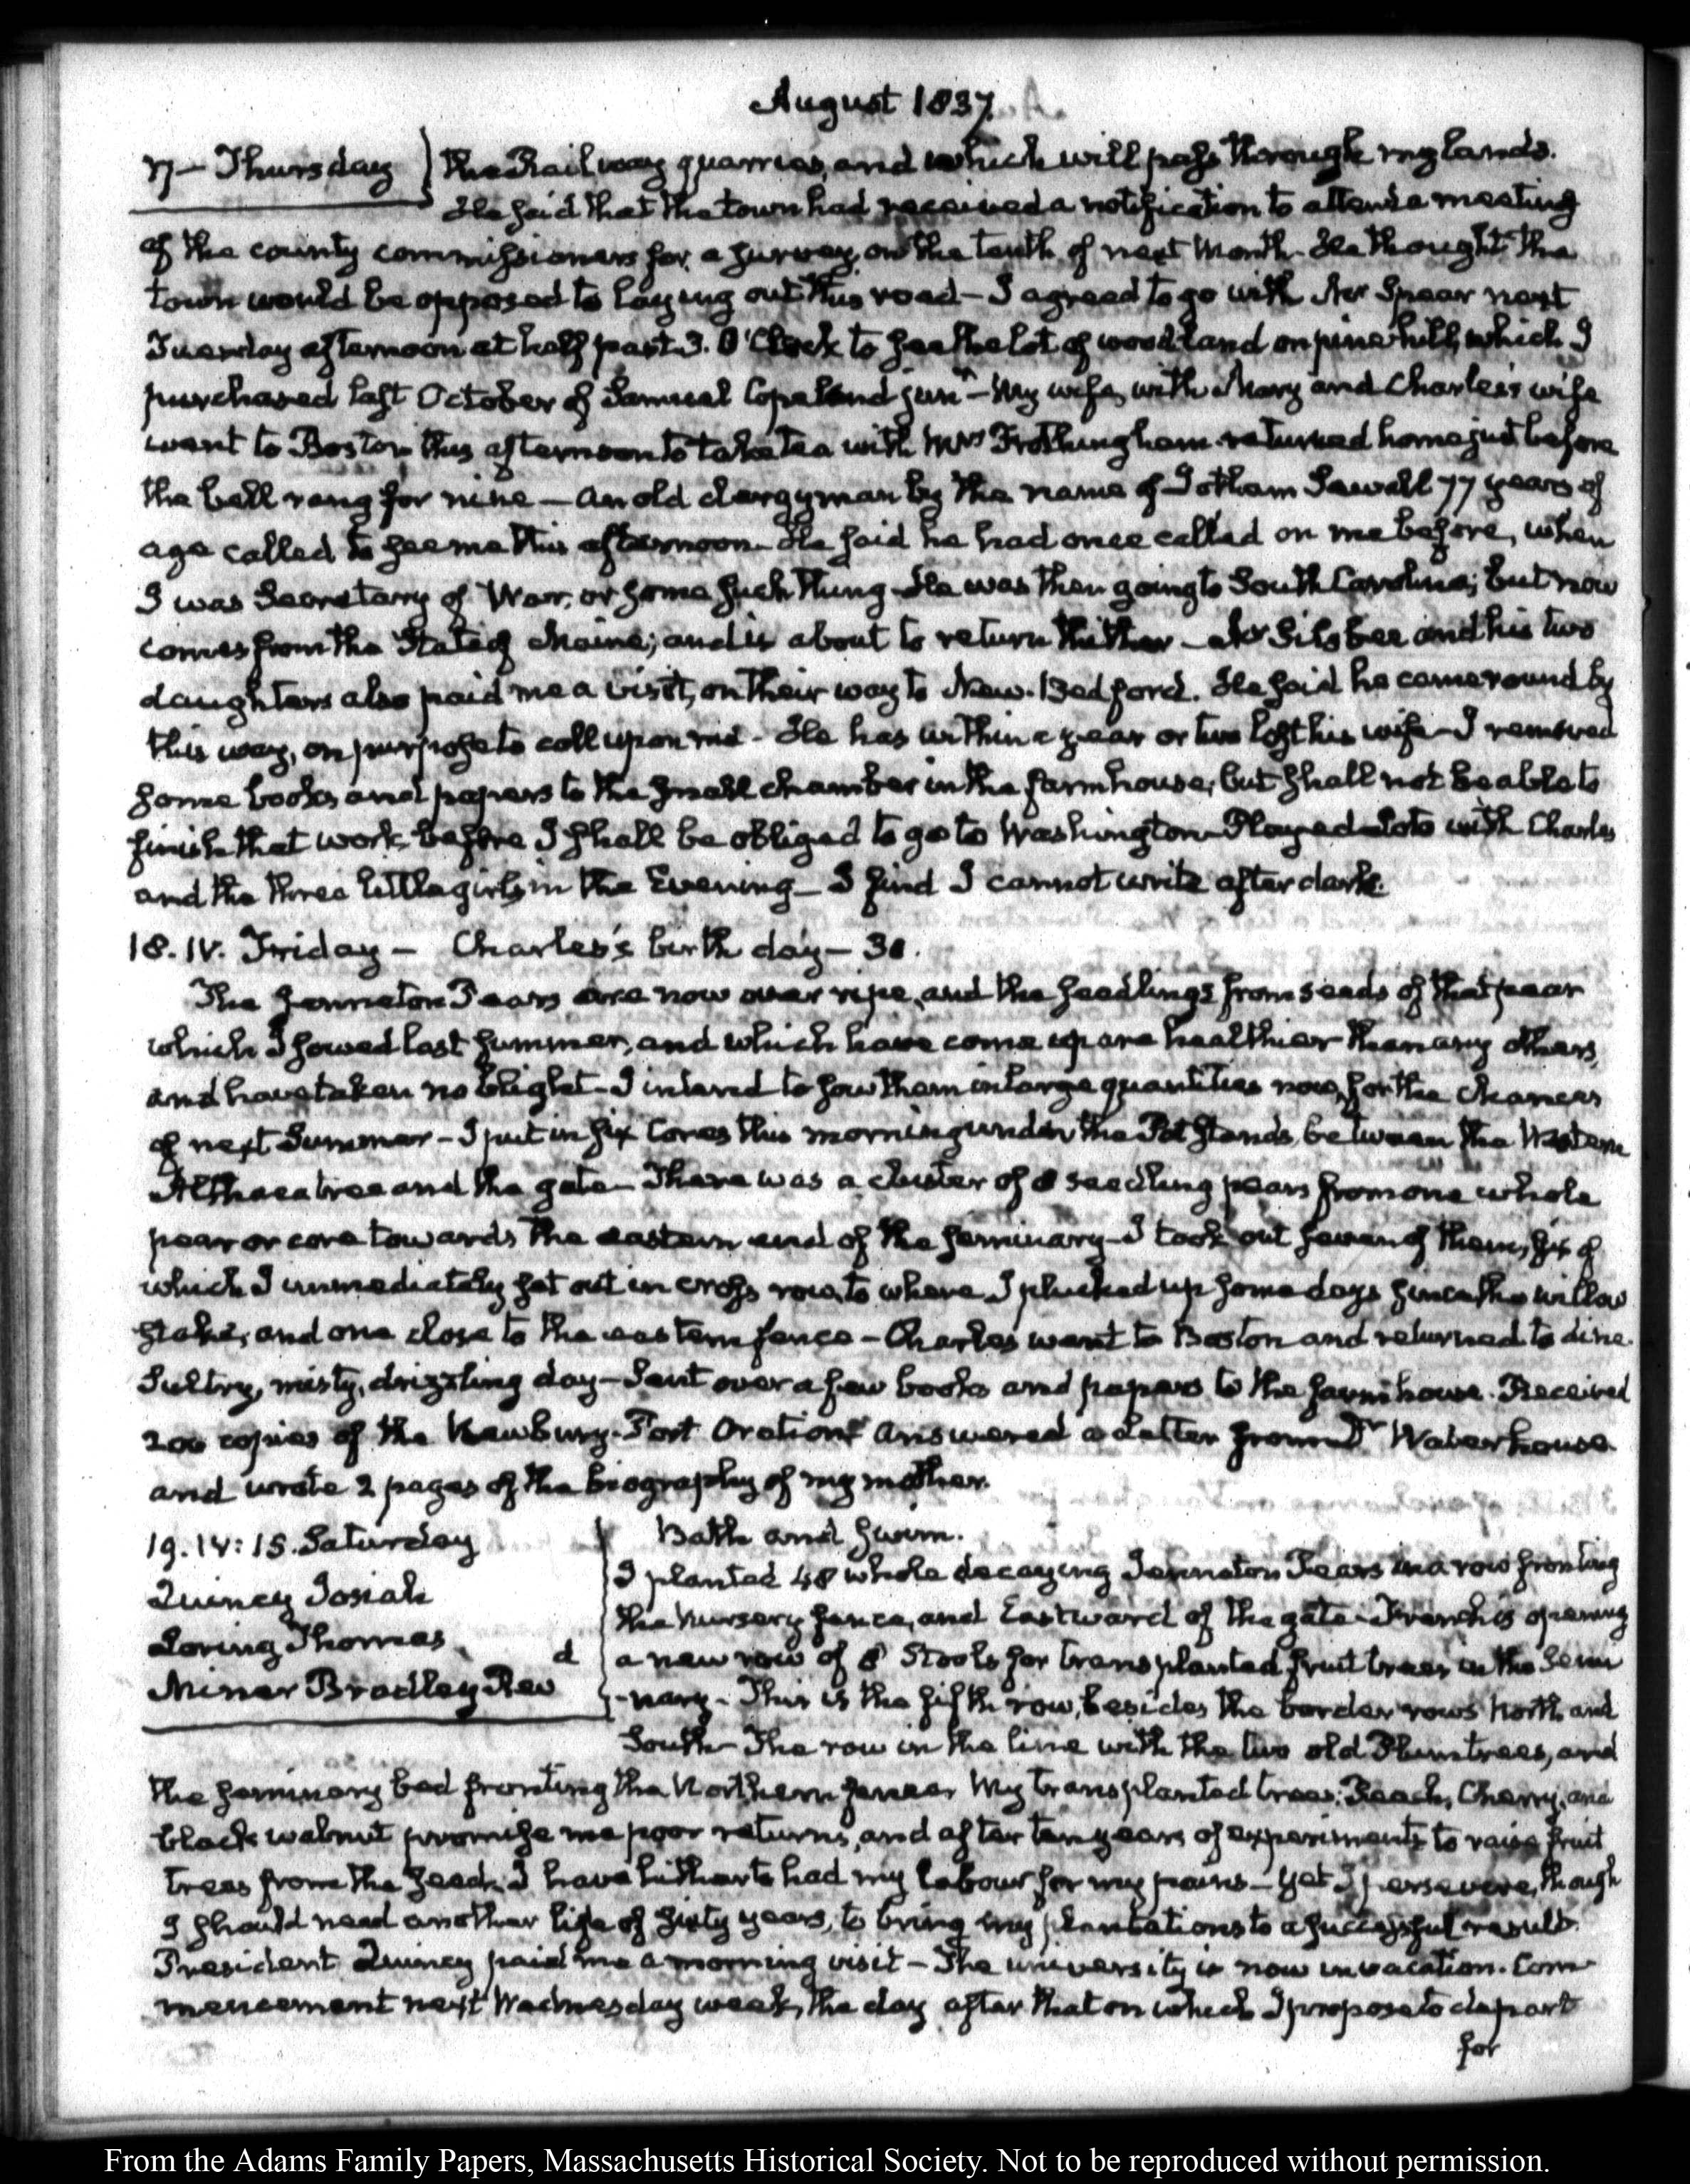 August 1837.
17 — Thursday
the Railway quarries, and which will pass through my lands.
He said that the town had received a notification to attend a meeting
of the county commissioners for a survey, on the tenth of next Month. He thought the
town would be opposed to laying out this road — I agreed to go with Mr Spear next
Tuesday afternoon at half past 3. O'Clock to see the lot of woodland on pine hill, which I
purchased last October of Samuel Copeland junr — My wife, with Mary and Charles's wife
went to Boston this afternoon to take tea with Mrs Frothingham. returned home just before
the bell rang for nine — An old clergyman by the name of Jotham Sewall 77 years of
age called to see me this afternoon. He said he had once called on me before, when
I was Secretary of War, or some such thing. He was then going to South Carolina; but now
comes from the State of Maine; and is about to return thither — Mr Silsbee and his two
daughters also paid me a visit, on their way to New-Bedford. He said he came round by
this way, on purpose to call upon me. He has within a year or two lost his wife — I removed
some books and papers to the small chamber in the farmhouse; but shall not be able to
finish that work before I shall be obliged to go to Washington — Played Loto with Charles
and the three little girls in the Evening — I find I cannot write after dark.
18. IV. Friday — Charles's birth day — 30.
The Jenneton Pears are now over ripe, and the seedlings from seeds of that pear
which I sowed last summer, and which have come up are healthier than any others,
and have taken no blight — I intend to sow them in large quantities now, for the chances
of next Summer — I put in six Cores this morning under the Pot stands, between the Western
Althaea tree and the gate — There was a cluster of 8 seedling pears from one whole
pear or core towards the eastern end of the seminary — I took out seven of them, six of
which I immediately set out in cross row, to where I plucked up some days since the willow
stake; and one close to the eastern fence — Charles went to Boston and returned to dine.
Sultry, misty, drizzling day — Sent over a few books and papers to the farmhouse. Received
200 copies of the Newbury-Port Oration. Answered a Letter from Dr Waterhouse
and wrote 2 pages of the biography of my mother.
19. IV: 15. Saturday
Quincy Josiah
Loring Thomas
Miner Bradley Rev d
Bath and swim.
I planted 48 whole decaying Jenneton Pears in a row fronting
the Nursery fence, and Eastward of the gate. French is opening
a new row of 8 Stools for transplanted fruit trees, in the Semi
-nary — This is the fifth row, besides the border rows North and
South — The row in the line with the two old Plumtrees, and
the seminary bed fronting the Northern fence. My transplanted trees; Peach, Cherry, and
black walnut promise me poor returns, and after ten years of experiments to raise fruit
trees from the seed, I have hitherto had my labour for my pains — yet I persevere, though
I should need another life of sixty years, to bring my plantations to a successful result.
President Quincy paid me a morning visit — The university is now in vacation. Com-
mencement next Wednesday week, the day after that on which I propose to depart
for
From the Adams Family Papers, Massachusetts Historical Society. Not to be reproduced without permission.